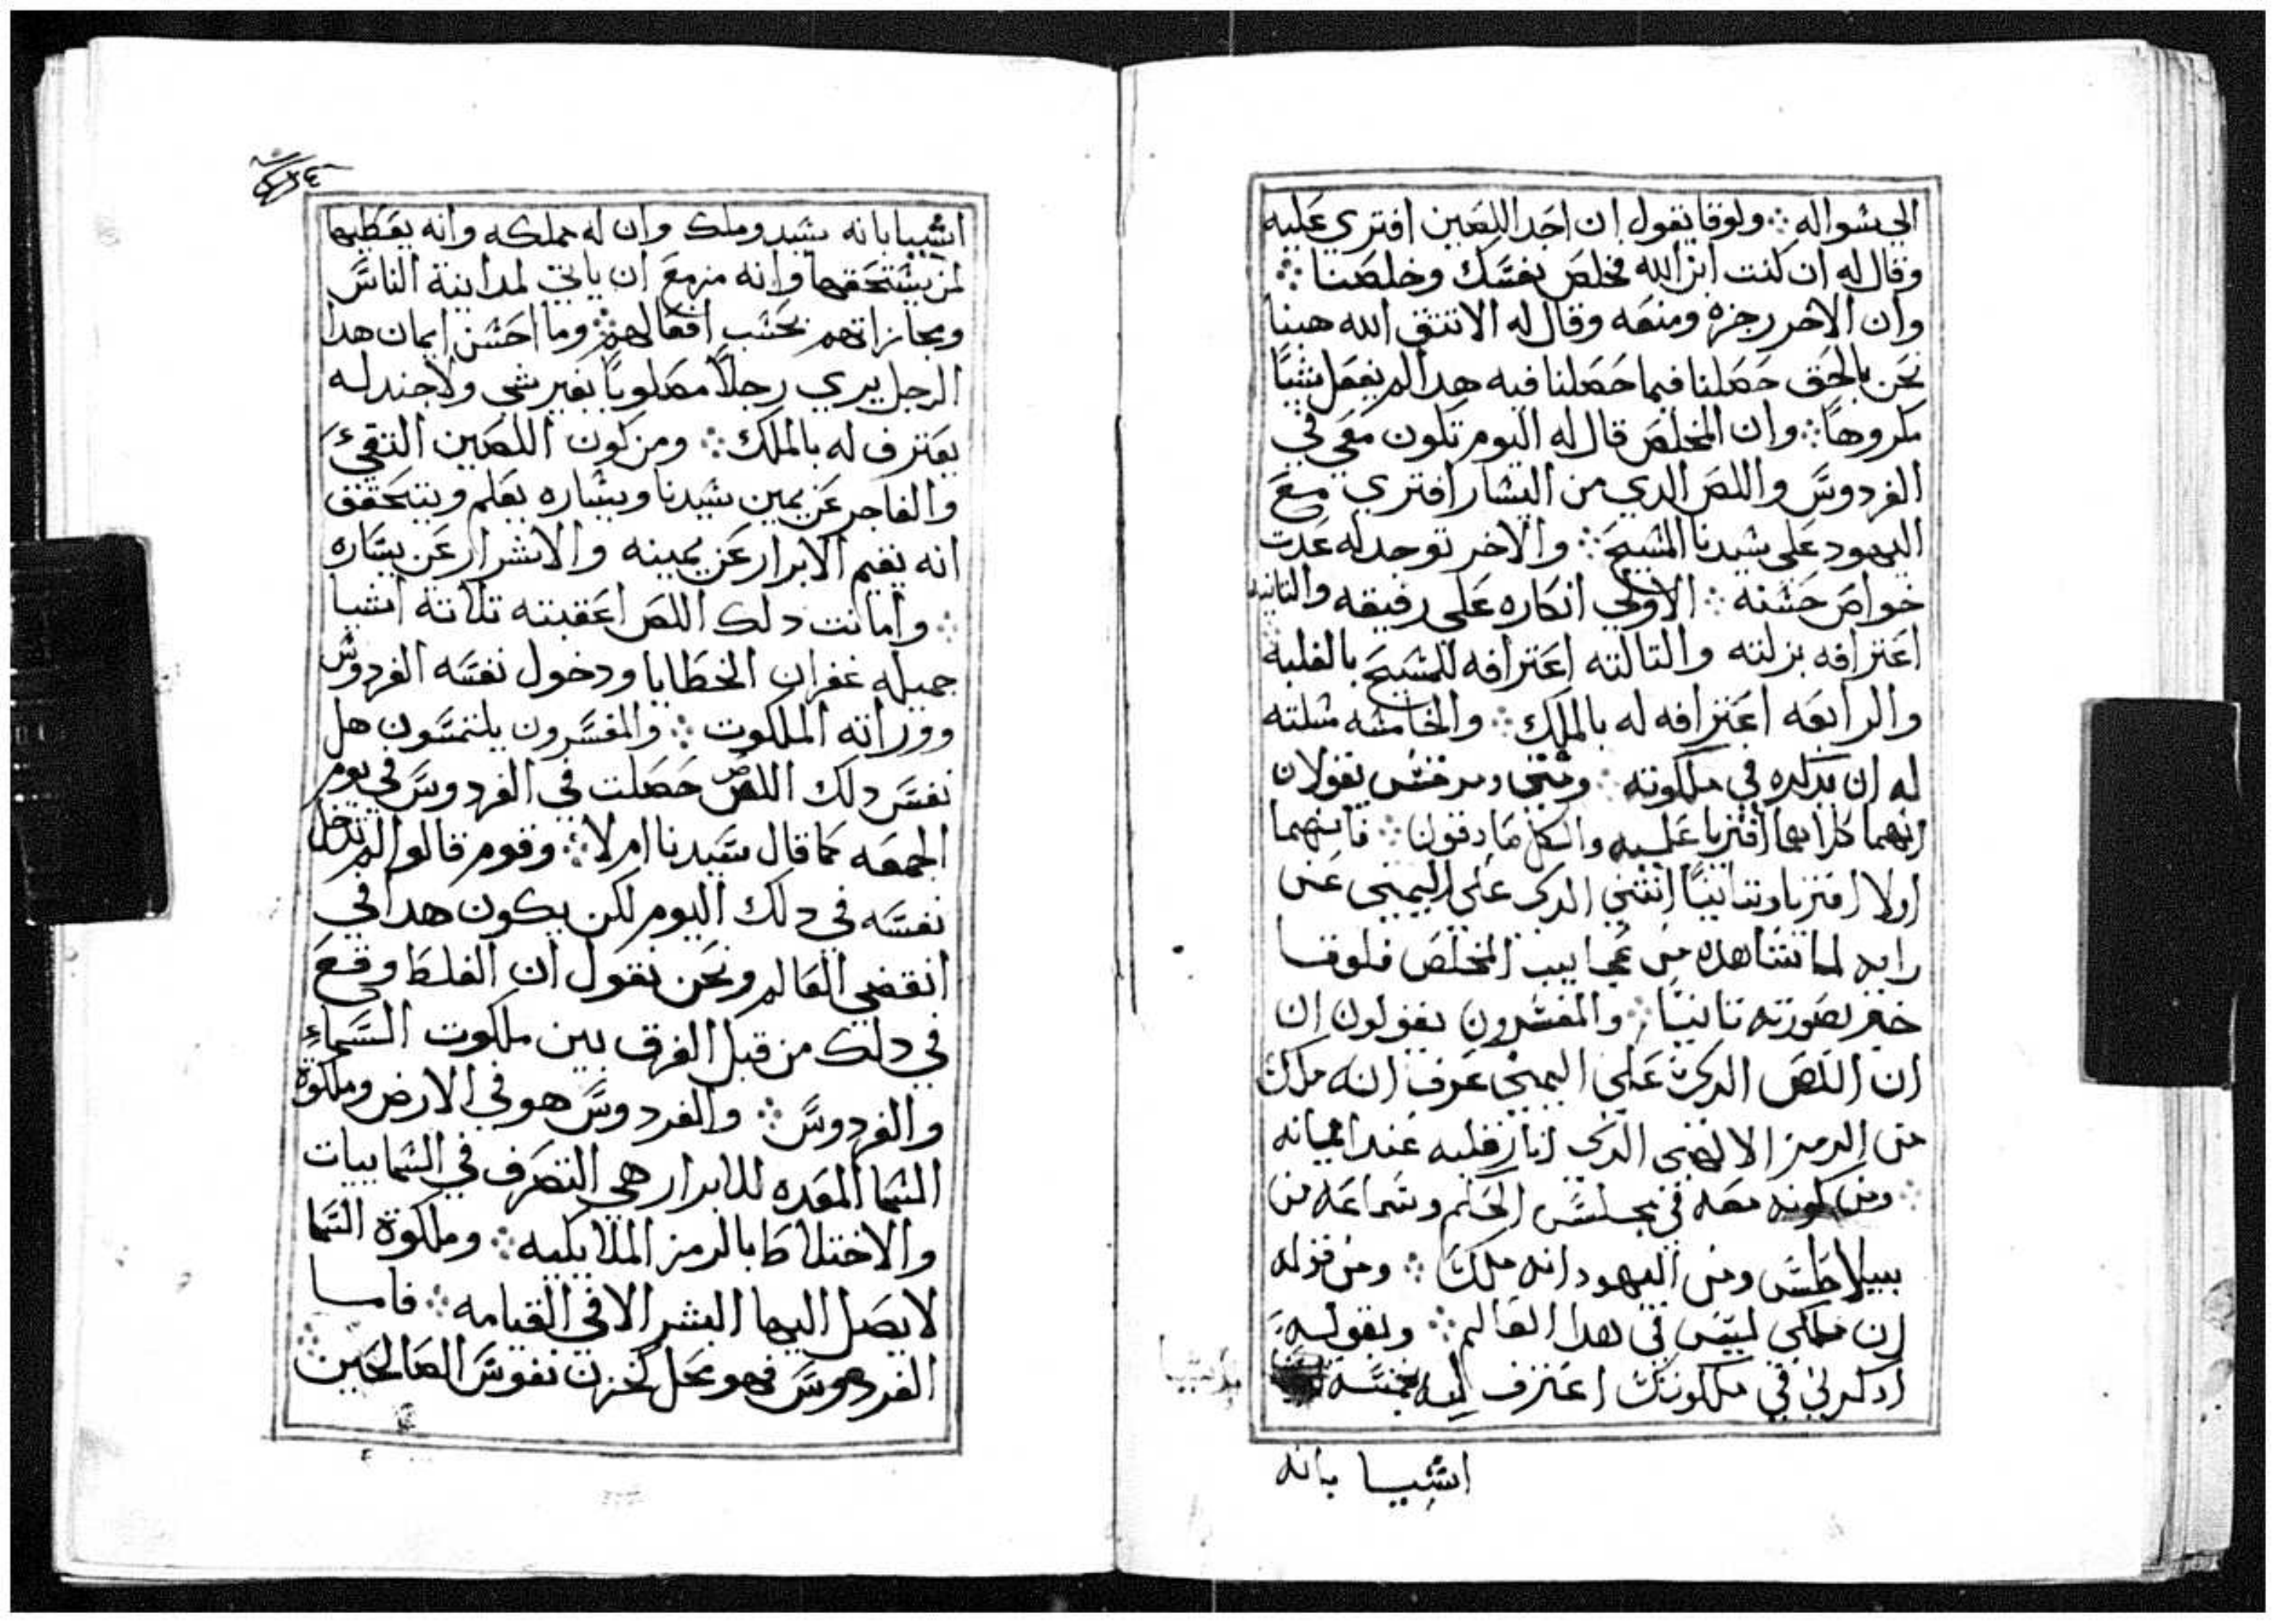 الى سواله ؞ ولوقا يقول ان احد اللصين افتري عليه
وقال له ان كنت ابن الله فخلص نفسك وخلصنا ؞
وان الاخر زجره ومنعه وقال له الا تتقي الله هبنا
نحن بالحق حصلنا فيما حصلنا فيه هدا لم يفعل شيًا
مكروهاً ؞ وان المخلص قال له اليوم تكون معي في
الفردوس واللص الدي من اليسار افتري مع
اليهود علي سيدنا المسيح ؞ والاخر توجد له عدت
خواص حسنه ؞ الاولي انكاره علي رفيقه والتانيه
اعترافه بزلته والتالته اعترافه للمسيح بالغلبه
والرابعه اعترافه له بالملك ؞ والخامسه مسلته
له ان يدكره في ملكوته ؞ ومتي ومرقس يقولان
انهما كلاهما افتريا عليه والكل صادقون ؞ فانهما
اولا افتريا وتانيًا انتني الدي علي اليمين عن
رايه لما شاهده من عجايب المخلص فلوقا
خبر بصورته تانيًا ؞ والمفسرون يقولون ان
ان اللص الدي علي اليمين عرف انه ملك
من الرمز الالهي الدي انار قلبه عند ايمانه
؞ ومن كونه معه في مجلس الحكم وسماعه من
بيلاطس ومن اليهود انه ملك ؞ ومن قوله
ان ملكي ليس في هدا العالم ؞ وبقوله
ادكرني في ملكوتك اعترف له بخمسة
اشيا بانه
اشيا بانه سيد وملك وان له مملكه وانه يعطيها
لمن يستحقها وانه مزمع ان ياتي لمداينة الناس
ومجازاتهم بحسب افعالهم ؞ وما احسن ايمان هدا
الرجل يري رجلاً مصلوبًا بغير شي ولا جند له
يعترف له بالملك ؞ ومن كون اللصين التقي
والفاجر عن يمين سيدنا ويساره يعلم ويتحقق
انه يقيم الابرار عن يمينه والاشرار عن يساره
؞ وامانت دلك اللص اعقبته تلاتة اشيا
جميله غفران الخطايا ودخول نفسه الفردوس
ووراتة الملكوت ؞ والمفسرون يلتمسون هل
نفس دلك اللص حصلت في الفردوس في يوم
الجمعه كما قال سيدنا ام لا ؞ وقوم قالوا لم تدخل
نفسه في دلك اليوم لكن يكون هدا في
انقضي العالم ونحن نقول ان الغلط وقع
في دلك من قبل الفرق بين ملكوت السماء
والفردوس ؞ والفردوس هو في الارض وملكوة
السما المعده للابرار هي التصرف في السماييات
والاختلاط بالرمز الملايكيه ؞ وملكوة السما
لا يصل اليها البشر الا في القيامه ؞ فاما
الفردوس فهو محل لخزن نفوس الصالحين ؞